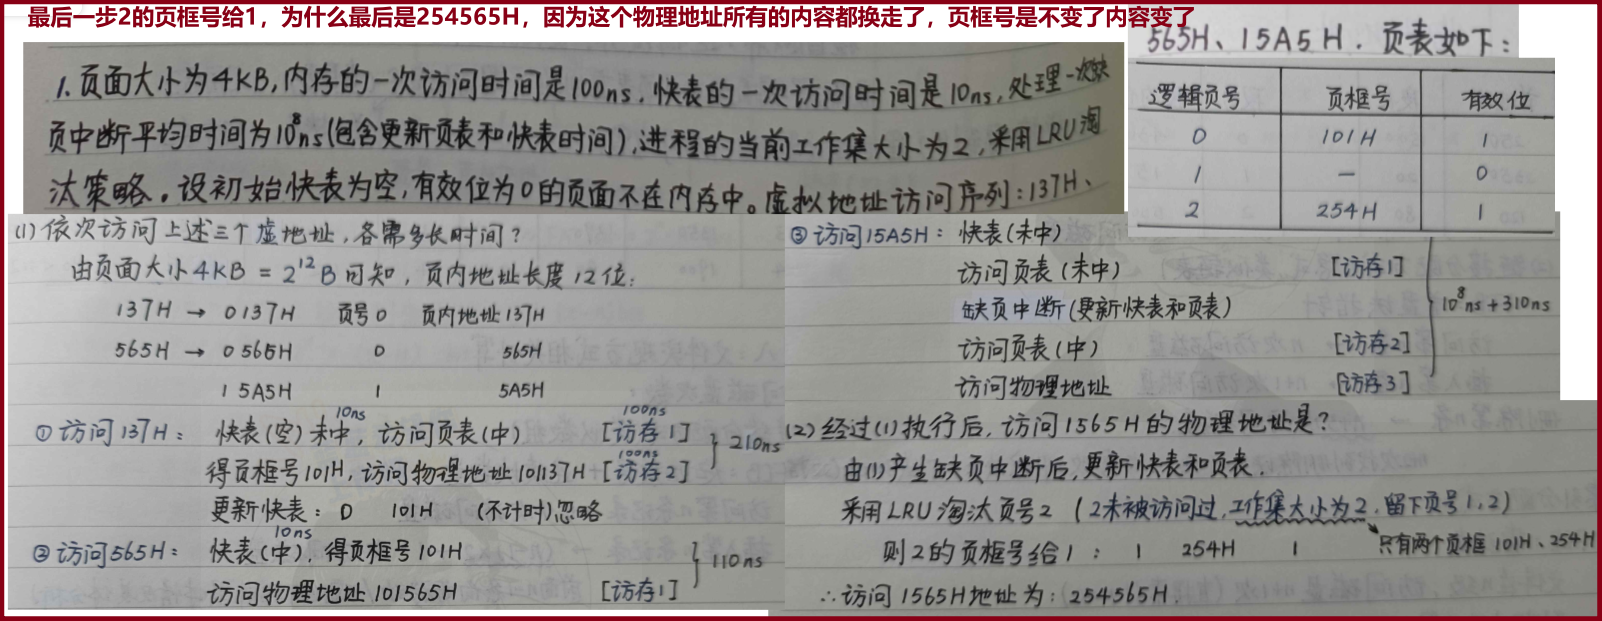 最后一步2的页框号给1，为什么最后是254565H，因为这个物理地址所有的内容都换走了，页框号是不变了内容变了
1.页面大小为4KB,内存的一次访问时间是100ns,快表的一次访问时间是10ns,处理一次缺
页中断平均时间为10⁸ns(包含更新页表和快表时间),进程的当前工作集大小为2,采用LRU淘
汰策略。设初始快表为空,有效位为0的页面不在内存中。虚拟地址访问序列:137H、
565H、15A5H.页表如下:
逻辑页号 页框号 有效位
0 101H 1
1 — 0
2 254H 1
(1)依次访问上述三个虚地址,各需多长时间?
由页面大小4KB = 2¹²B可知,页内地址长度12位:
137H → 0137H 页号0 页内地址137H
565H → 0565H 0 565H
15A5H 1 5A5H
10ns 100ns
①访问137H: 快表(空)未中,访问页表(中) [访存1]
210ns
100ns
得页框号101H,访问物理地址101137H [访存2]
更新快表: 0 101H (不计时)忽略
10ns
②访问565H: 快表(中),得页框号101H
110ns
访问物理地址101565H [访存1]
③访问15A5H: 快表(未中)
访问页表(未中) [访存1]
缺页中断(更新快表和页表)
10⁸ns+310ns
访问页表(中) [访存2]
访问物理地址 [访存3]
(2)经过(1)执行后,访问1565H的物理地址是?
由(1)产生缺页中断后,更新快表和页表.
采用LRU淘汰页号2 (2未被访问过,工作集大小为2,留下页号1,2)
则2的页框号给1: 1 254H 1
只有两个页框101H、254H
∴访问1565H地址为:254565H.